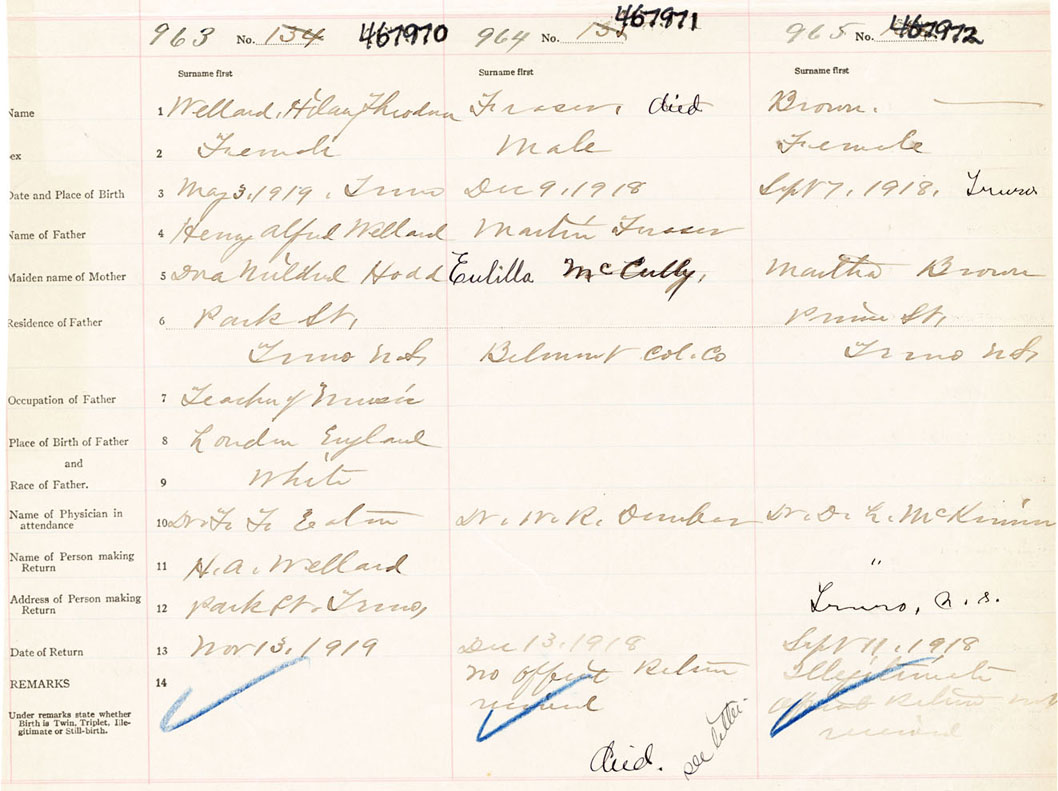 963 No. 134 467970 964 No. 135 467971 965 No. 467972
Surname first Surname first Surname first
Name 1 Wellard, Hilary Theodora Fraser, died Brown.
ex 2 Female Male Female
Date and Place of Birth 3 May 3, 1919, Truro Dec 9, 1918 Sept 7, 1918, Truro
Name of Father 4 Henry Alfred Wellard Martin Fraser
Maiden name of Mother 5 Dora Mildred Hodd Eulilla McCully, Martha Brown
Residence of Father 6 Park St, Prince St,
Truro N.S. Belmont Col. Co Truro N.S.
Occupation of Father 7 Teacher of Music
Place of Birth of Father 8 London England
and
Race of Father. 9 White
Name of Physician in
attendance 10 Dr. F. F. Eaton Dr. W. R. Dunbar Dr. D. L. McKinnon
Name of Person making
Return 11 H. A. Wellard "
Address of Person making
Return 12 Park St. Truro, Truro, N.S.
Date of Return 13 Nov 13, 1919 Dec 13, 1918 Sept 11, 1918
REMARKS 14 no official Return Illegitimate
Under remarks state whether received Return not
Birth is Twin, Triplet, Ille-
gitimate or Still-birth. received
died. see letter